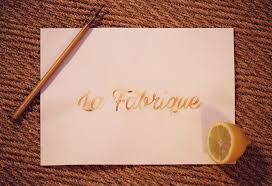 La Fabrique